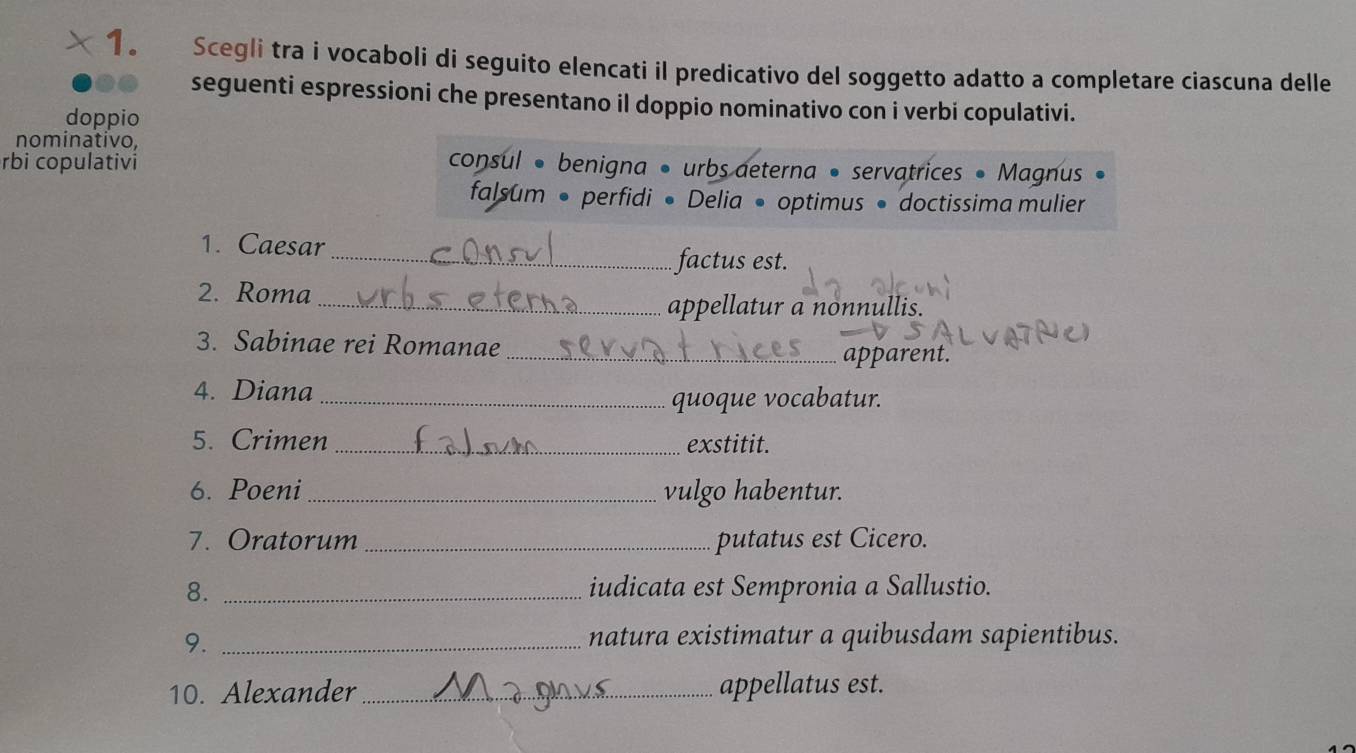 × 1. Scegli tra i vocaboli di seguito elencati il predicativo del soggetto adatto a completare ciascuna delle
seguenti espressioni che presentano il doppio nominativo con i verbi copulativi.
doppio
nominativo,
rbi copulativi
consul • benigna • urbs aeterna • servatrices • Magnus •
falsum • perfidi • Delia • optimus • doctissima mulier
1. Caesar consul factus est.
da alcuni
2. Roma urbs eterna appellatur a nonnullis.
→ SALVATRICI
3. Sabinae rei Romanae servatrices apparent.
4. Diana quoque vocabatur.
5. Crimen falsum exstitit.
6. Poeni vulgo habentur.
7. Oratorum putatus est Cicero.
8. iudicata est Sempronia a Sallustio.
9. natura existimatur a quibusdam sapientibus.
10. Alexander Magnus appellatus est.